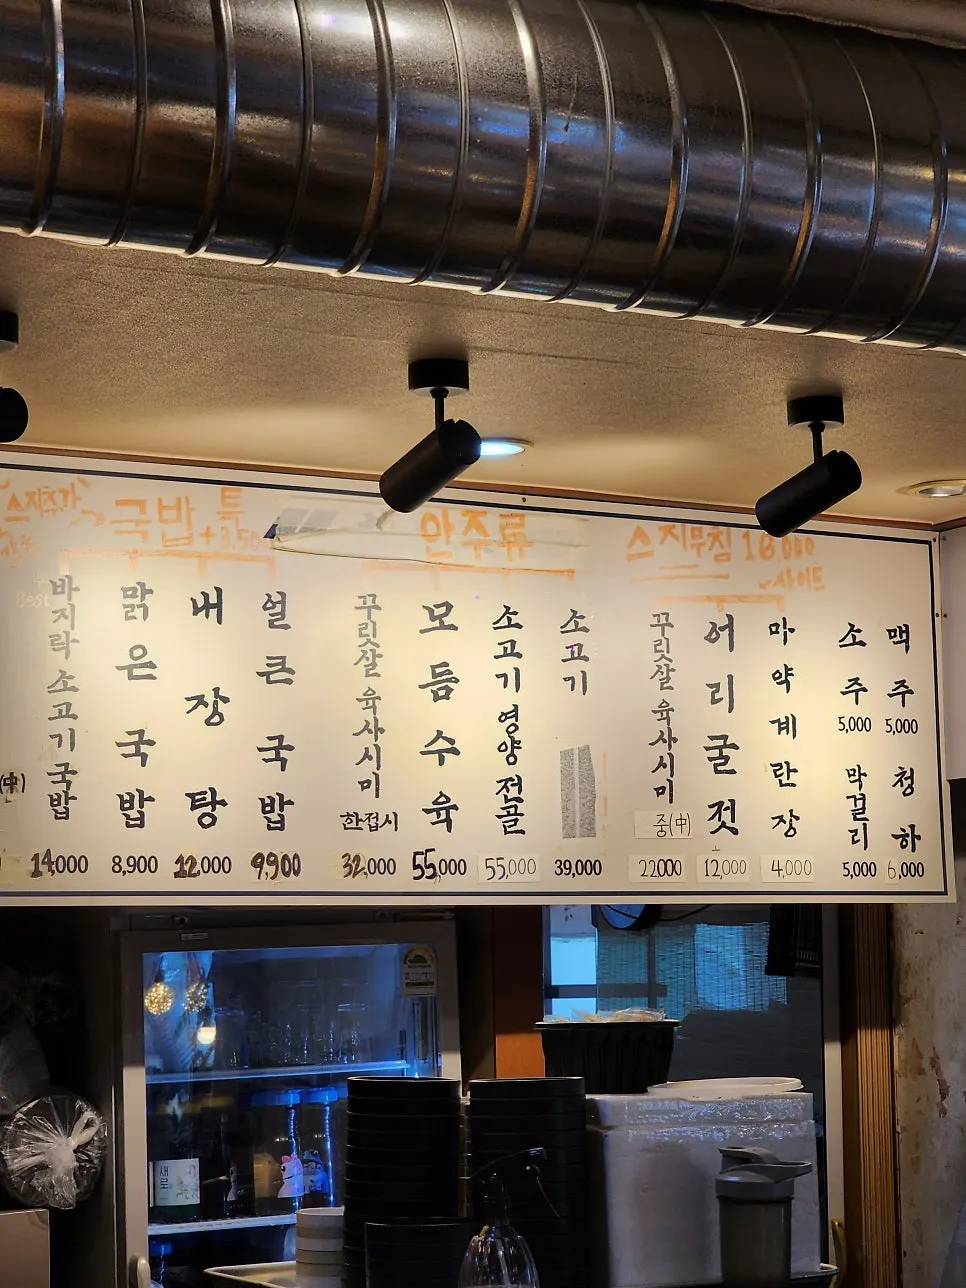 "스지추가"
국밥 특
+3,500
안주류
스지무침 18,000
사이드
Best
바지락소고기국밥
14,000
맑은국밥
8,900
내장탕
12,000
얼큰국밥
9,900
꾸릿살 육사시미
한접시
32,000
모듬수육
55,000
소고기영양전골
55,000
소고기
39,000
꾸릿살 육사시미
중(中)
22000
어리굴젓
12,000
마약계란장
4,000
소주
5,000
맥주
5,000
막걸리
5,000
청하
6,000
(中)
새로